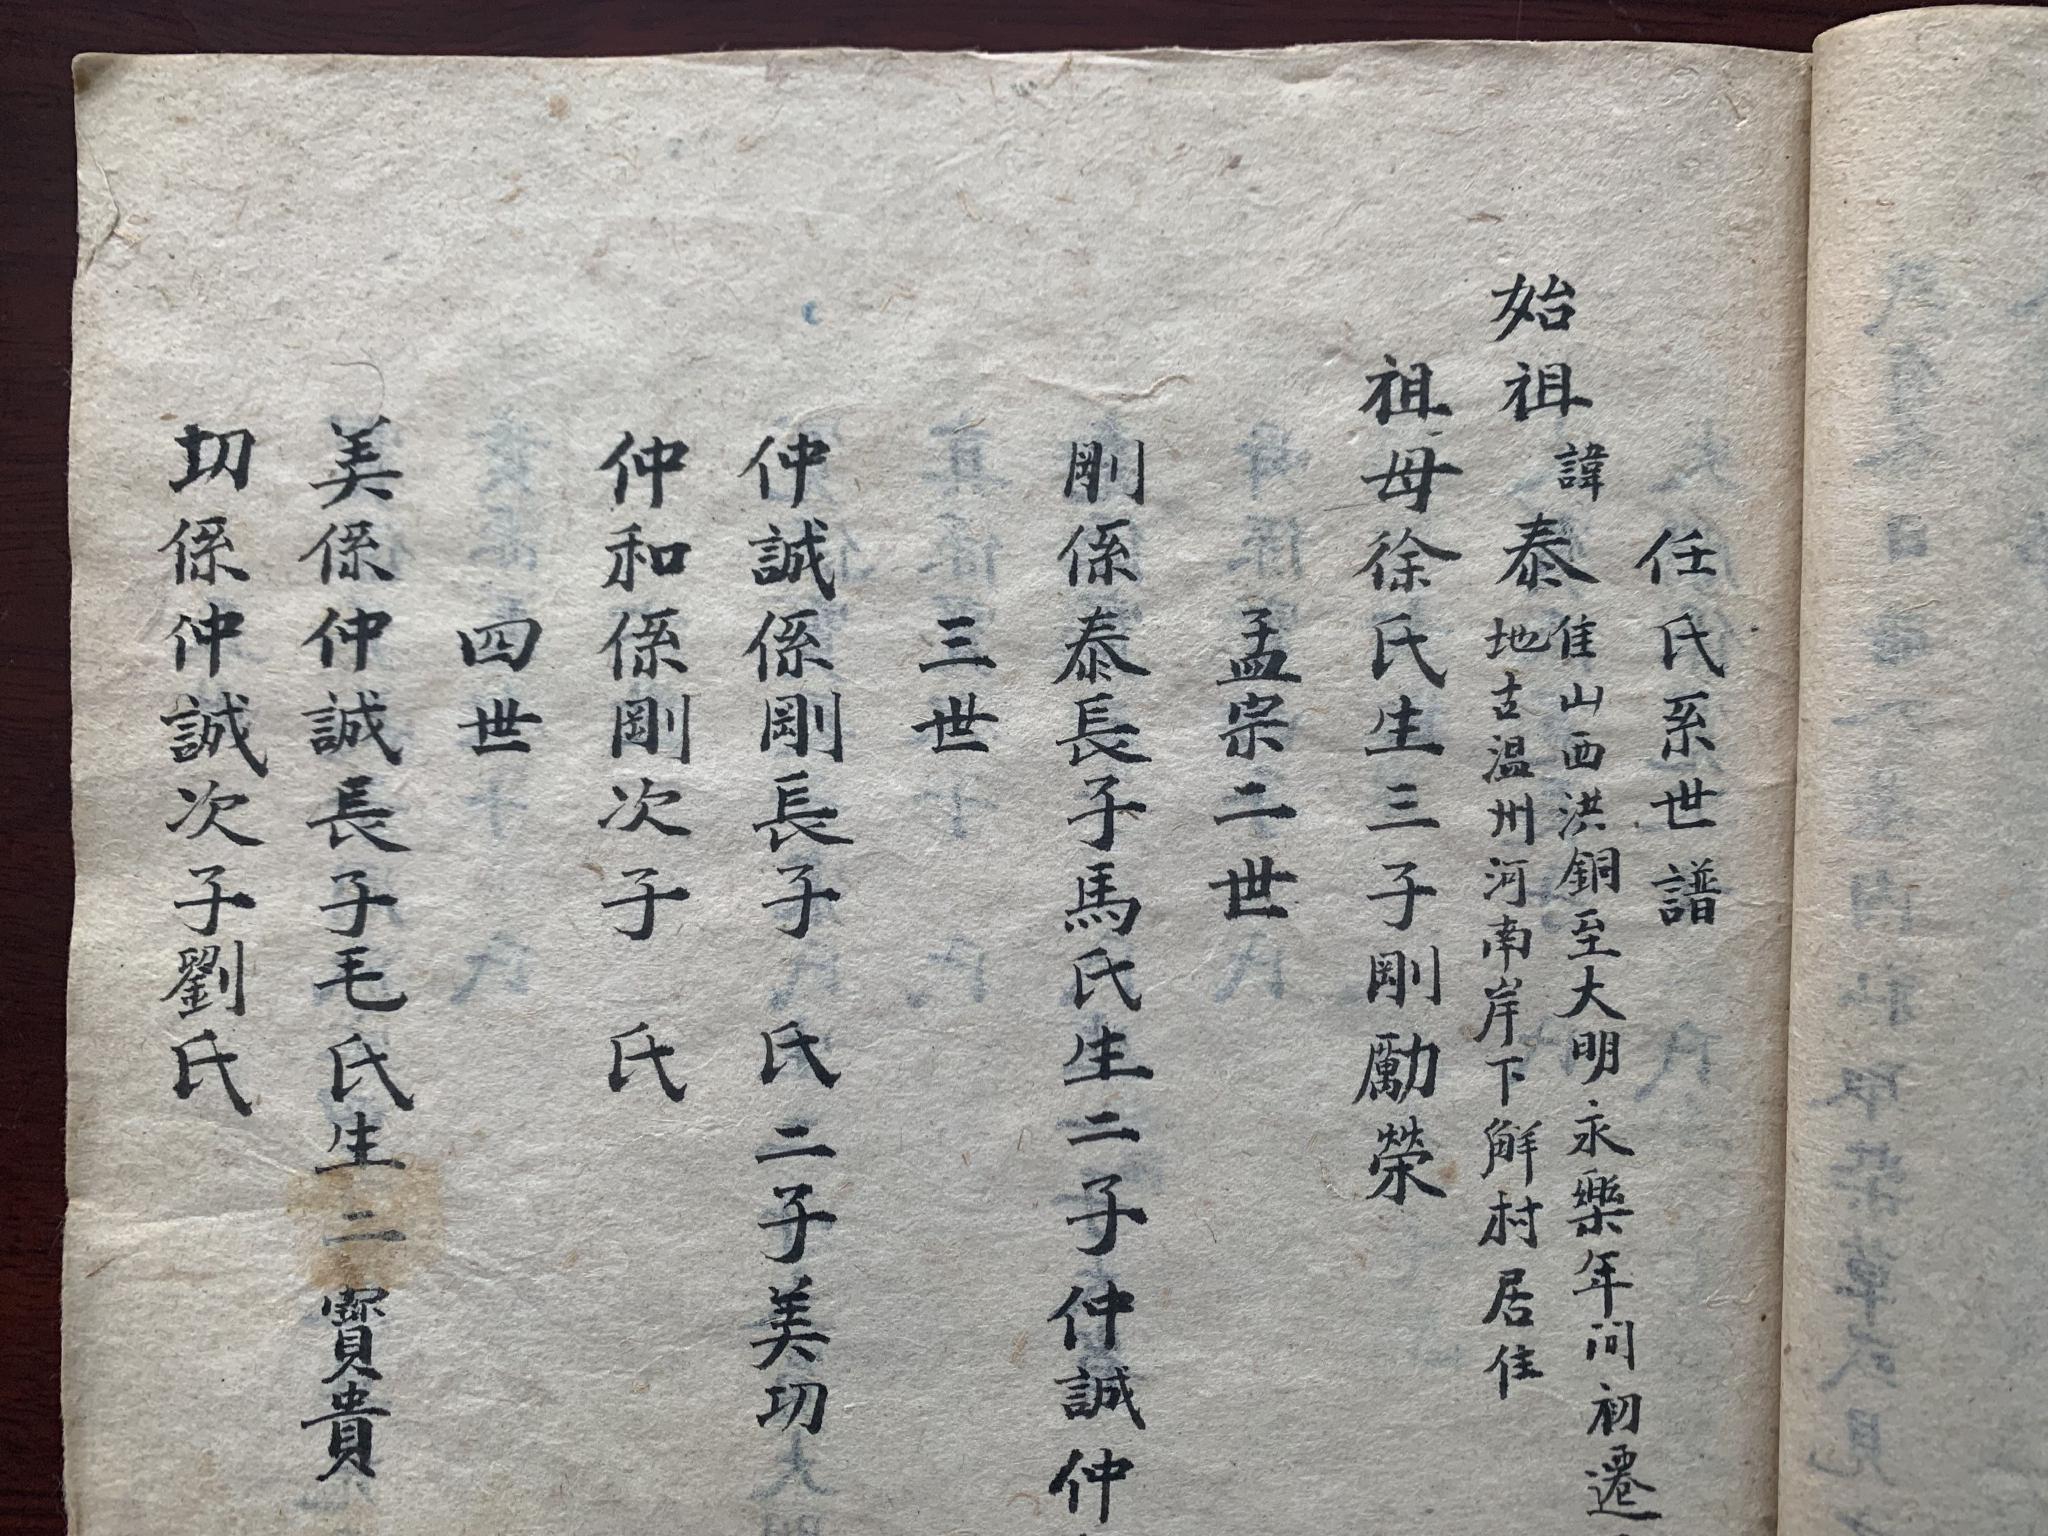 任氏系世譜
始祖諱泰
住山西洪銅至大明永樂年间初遷
地古温州河南岸下解村居住
祖母徐氏生三子剛勵榮
孟宗二世
剛係泰長子馬氏生二子仲誠仲
三世
仲誠係剛長子 氏二子美切
仲和係剛次子 氏
四世
美係仲誠長子毛氏生二寳貴
切係仲誠次子劉氏